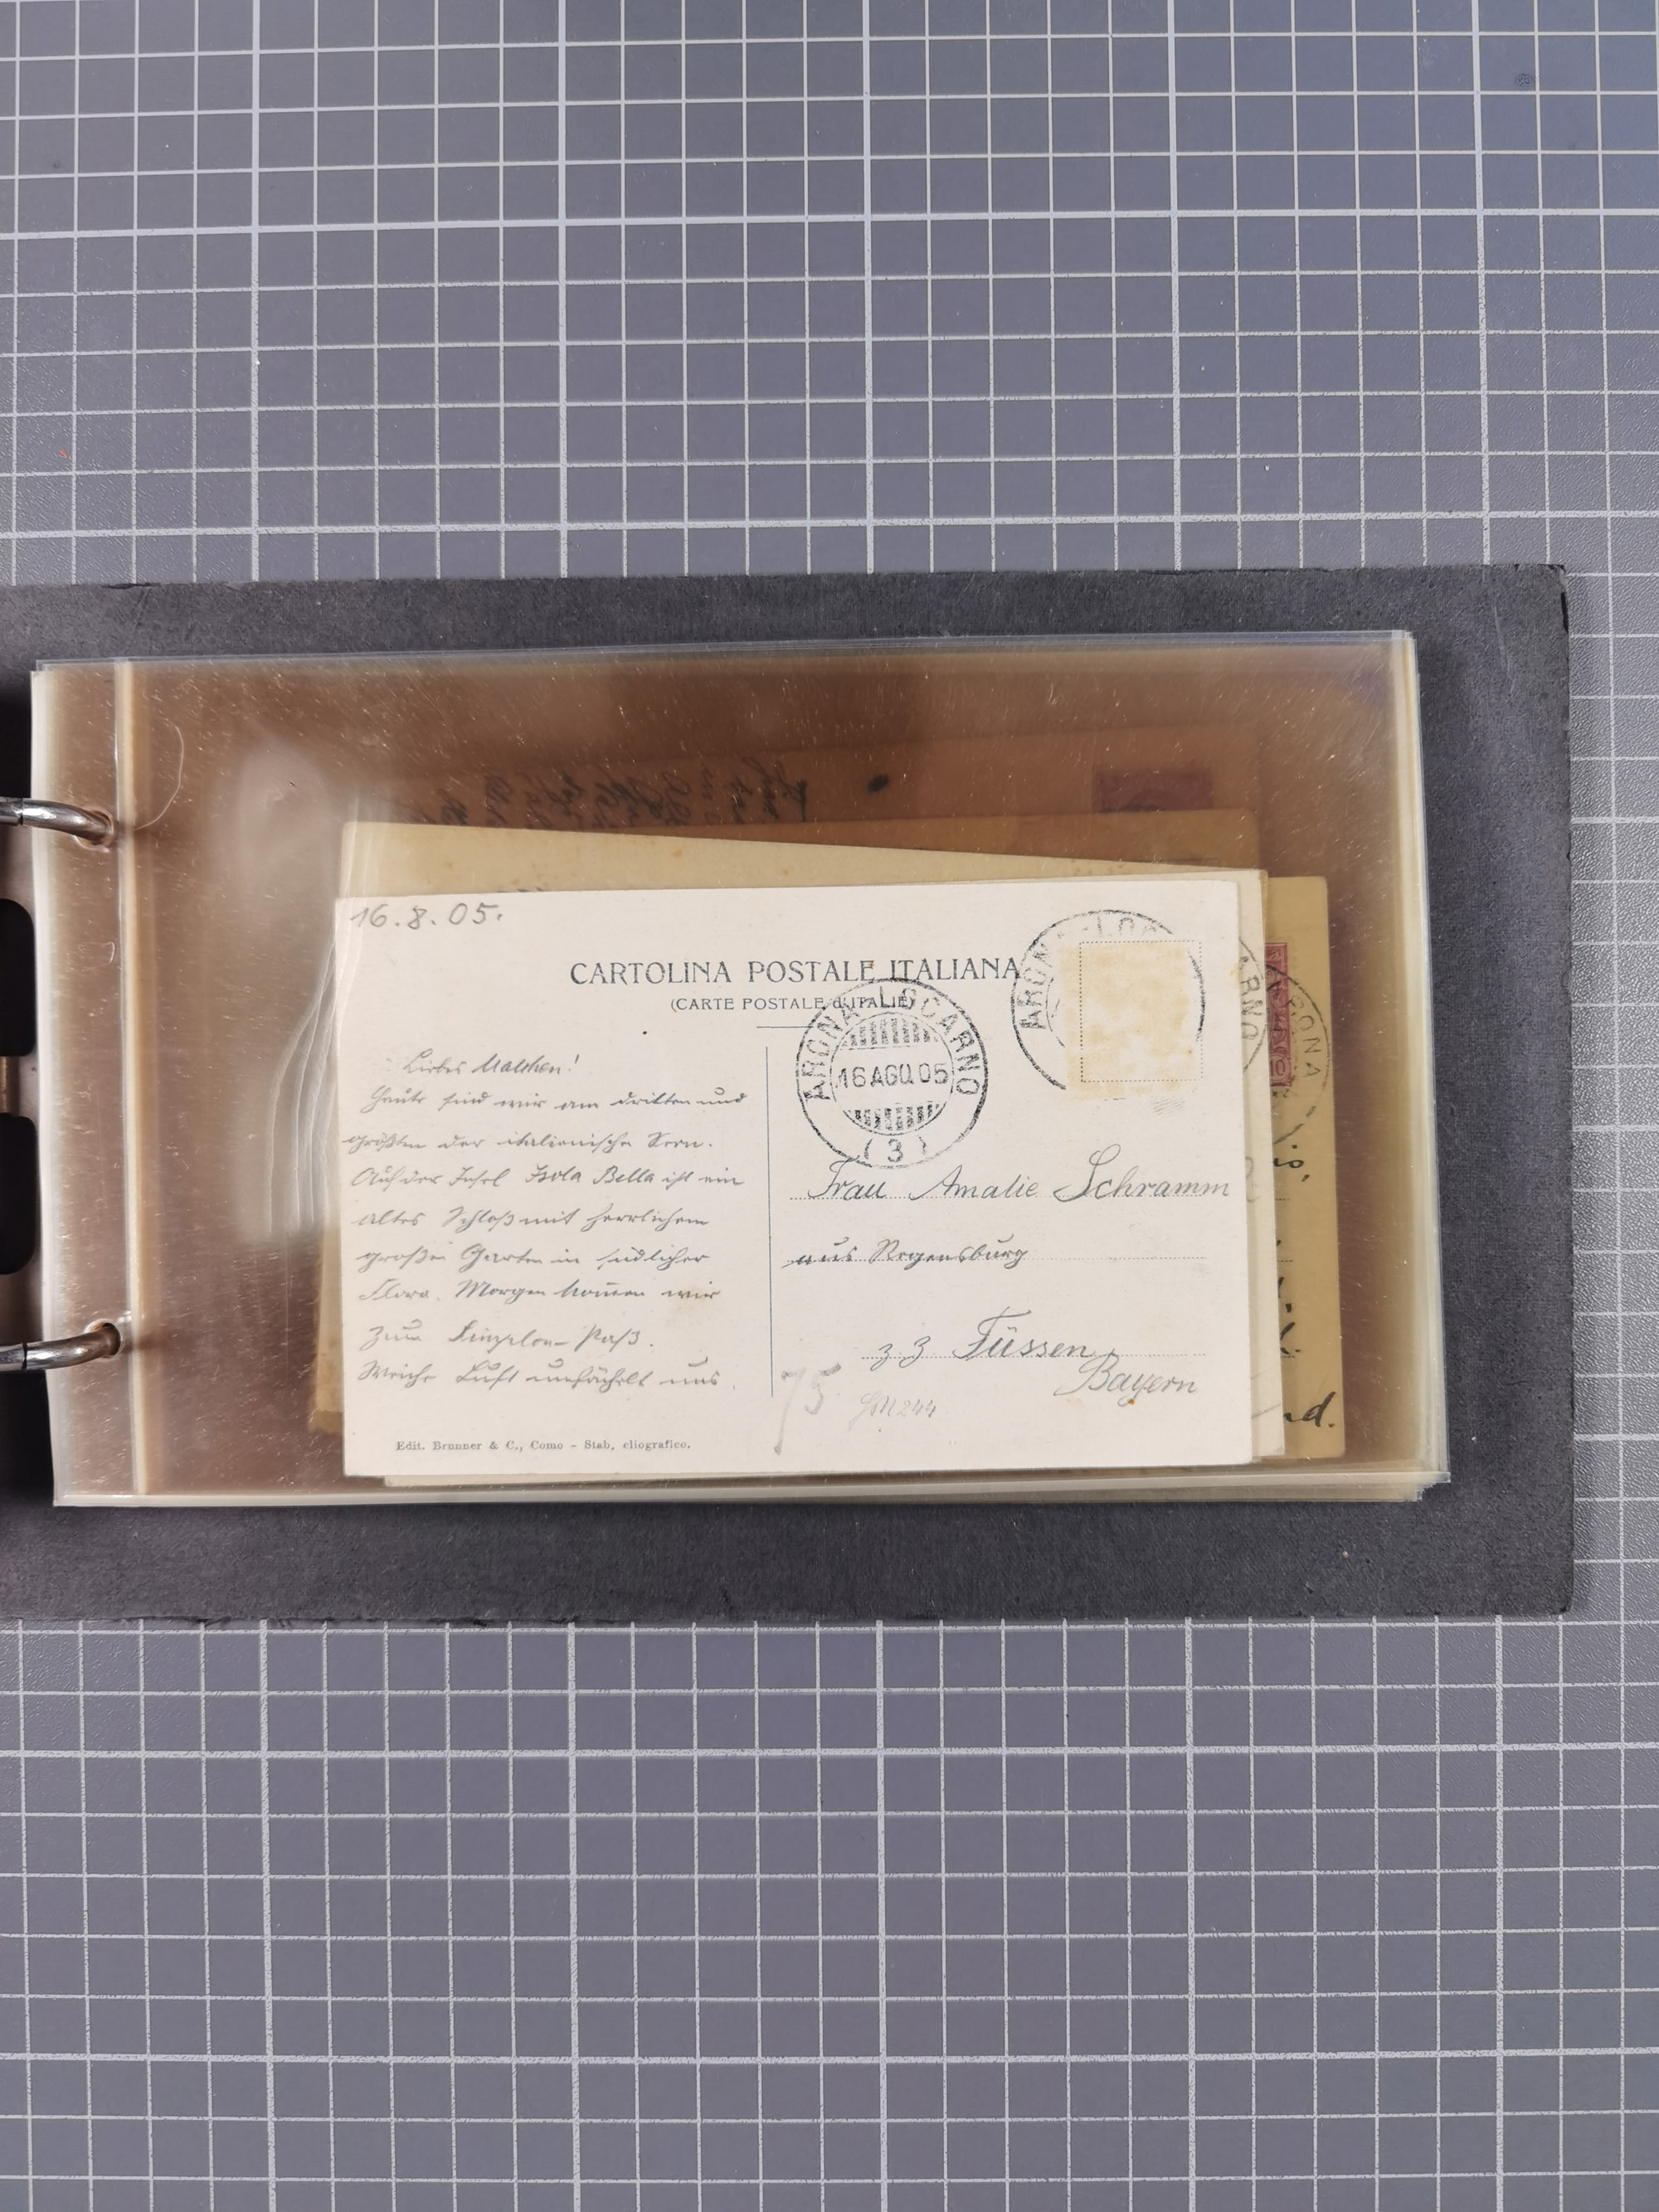 16.8.05.
CARTOLINA POSTALE ITALIANA
(CARTE POSTALE d'ITALIE)
ARONA-LOCARNO
16 AGO 05
(3)
Liebes Malchen!
Heute sind wir am dritten und
größten der italienische Seen.
Auf der Insel Isola Bella ist ein
altes Schloß mit herrlichem
großen Garten in südlicher
Flora. Morgen kom̅en wir
zum Simplon-Paß.
Weiche Luft umfächelt uns.
Frau Amalie Schramm
aus Regensburg
z Z Füssen
Bayern
75
Edit. Brunner & C., Como - Stab, eliografico.
nd.